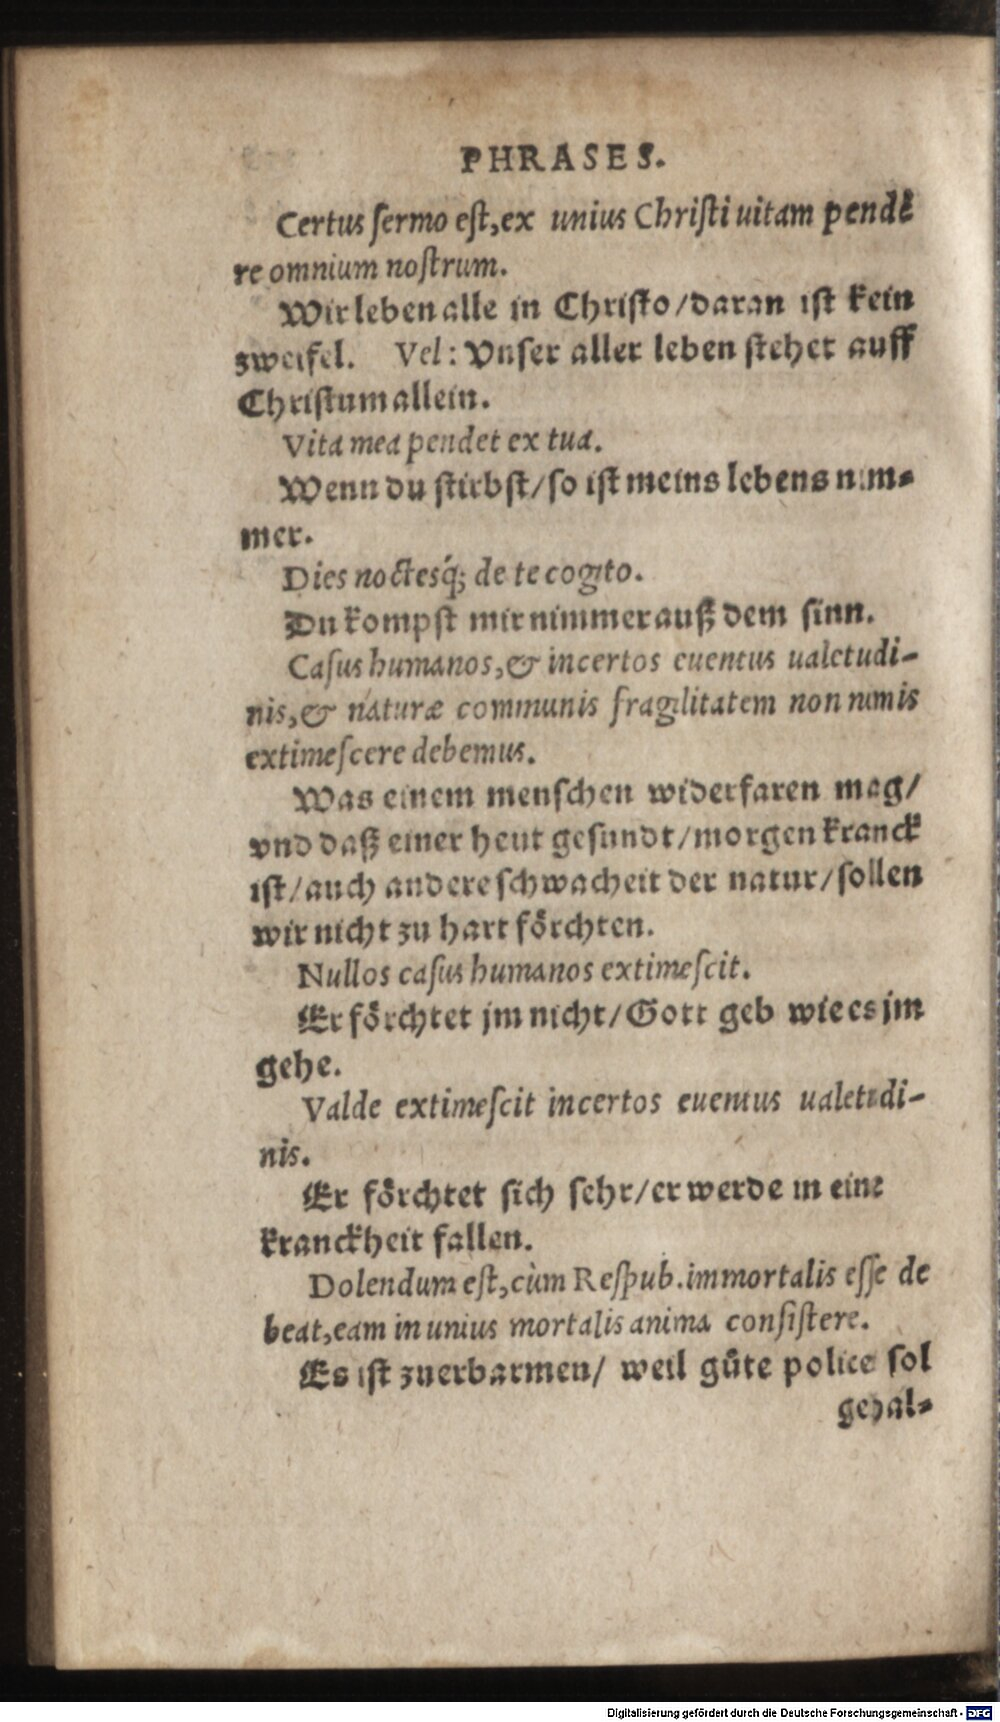 PHRASES.
Certus ſermo eſt, ex unius Chriſti uitam pendē
re omnium noſtrum.
Wir leben alle in Chriſto/daran iſt kein
zweifel. Vel: Vnſer aller leben ſtehet auff
Chriſtum allein.
Vita mea pendet ex tua.
Wenn du ſtirbſt/ſo iſt meins lebens nim⸗
mer.
Dies noctesq́; de te cogito.
Du kompſt mir nimmer auß dem ſinn.
Caſus humanos, & incertos euentus ualetudi-
nis, & naturæ communis fragilitatem non nimis
extimeſcere debemus.
Was einem menſchen widerfaren mag/
vnd daß einer heut geſundt/morgen kranck
iſt/auch andere ſchwacheit der natur/ſollen
wir nicht zu hart foͤrchten.
Nullos caſus humanos extimeſcit.
Er foͤrchtet jm nicht/Gott geb wie es jm
gehe.
Valde extimeſcit incertos euentus ualetudi-
nis.
Er foͤrchtet ſich ſehr/er werde in eine
kranckheit fallen.
Dolendum eſt, cùm Reſpub. immortalis eſſe de
beat, eam in unius mortalis anima conſiſtere.
Es iſt zuerbarmen/ weil guͦte police ſol
gehal⸗
Digitalisierung gefördert durch die Deutsche Forschungsgemeinschaft - DFG